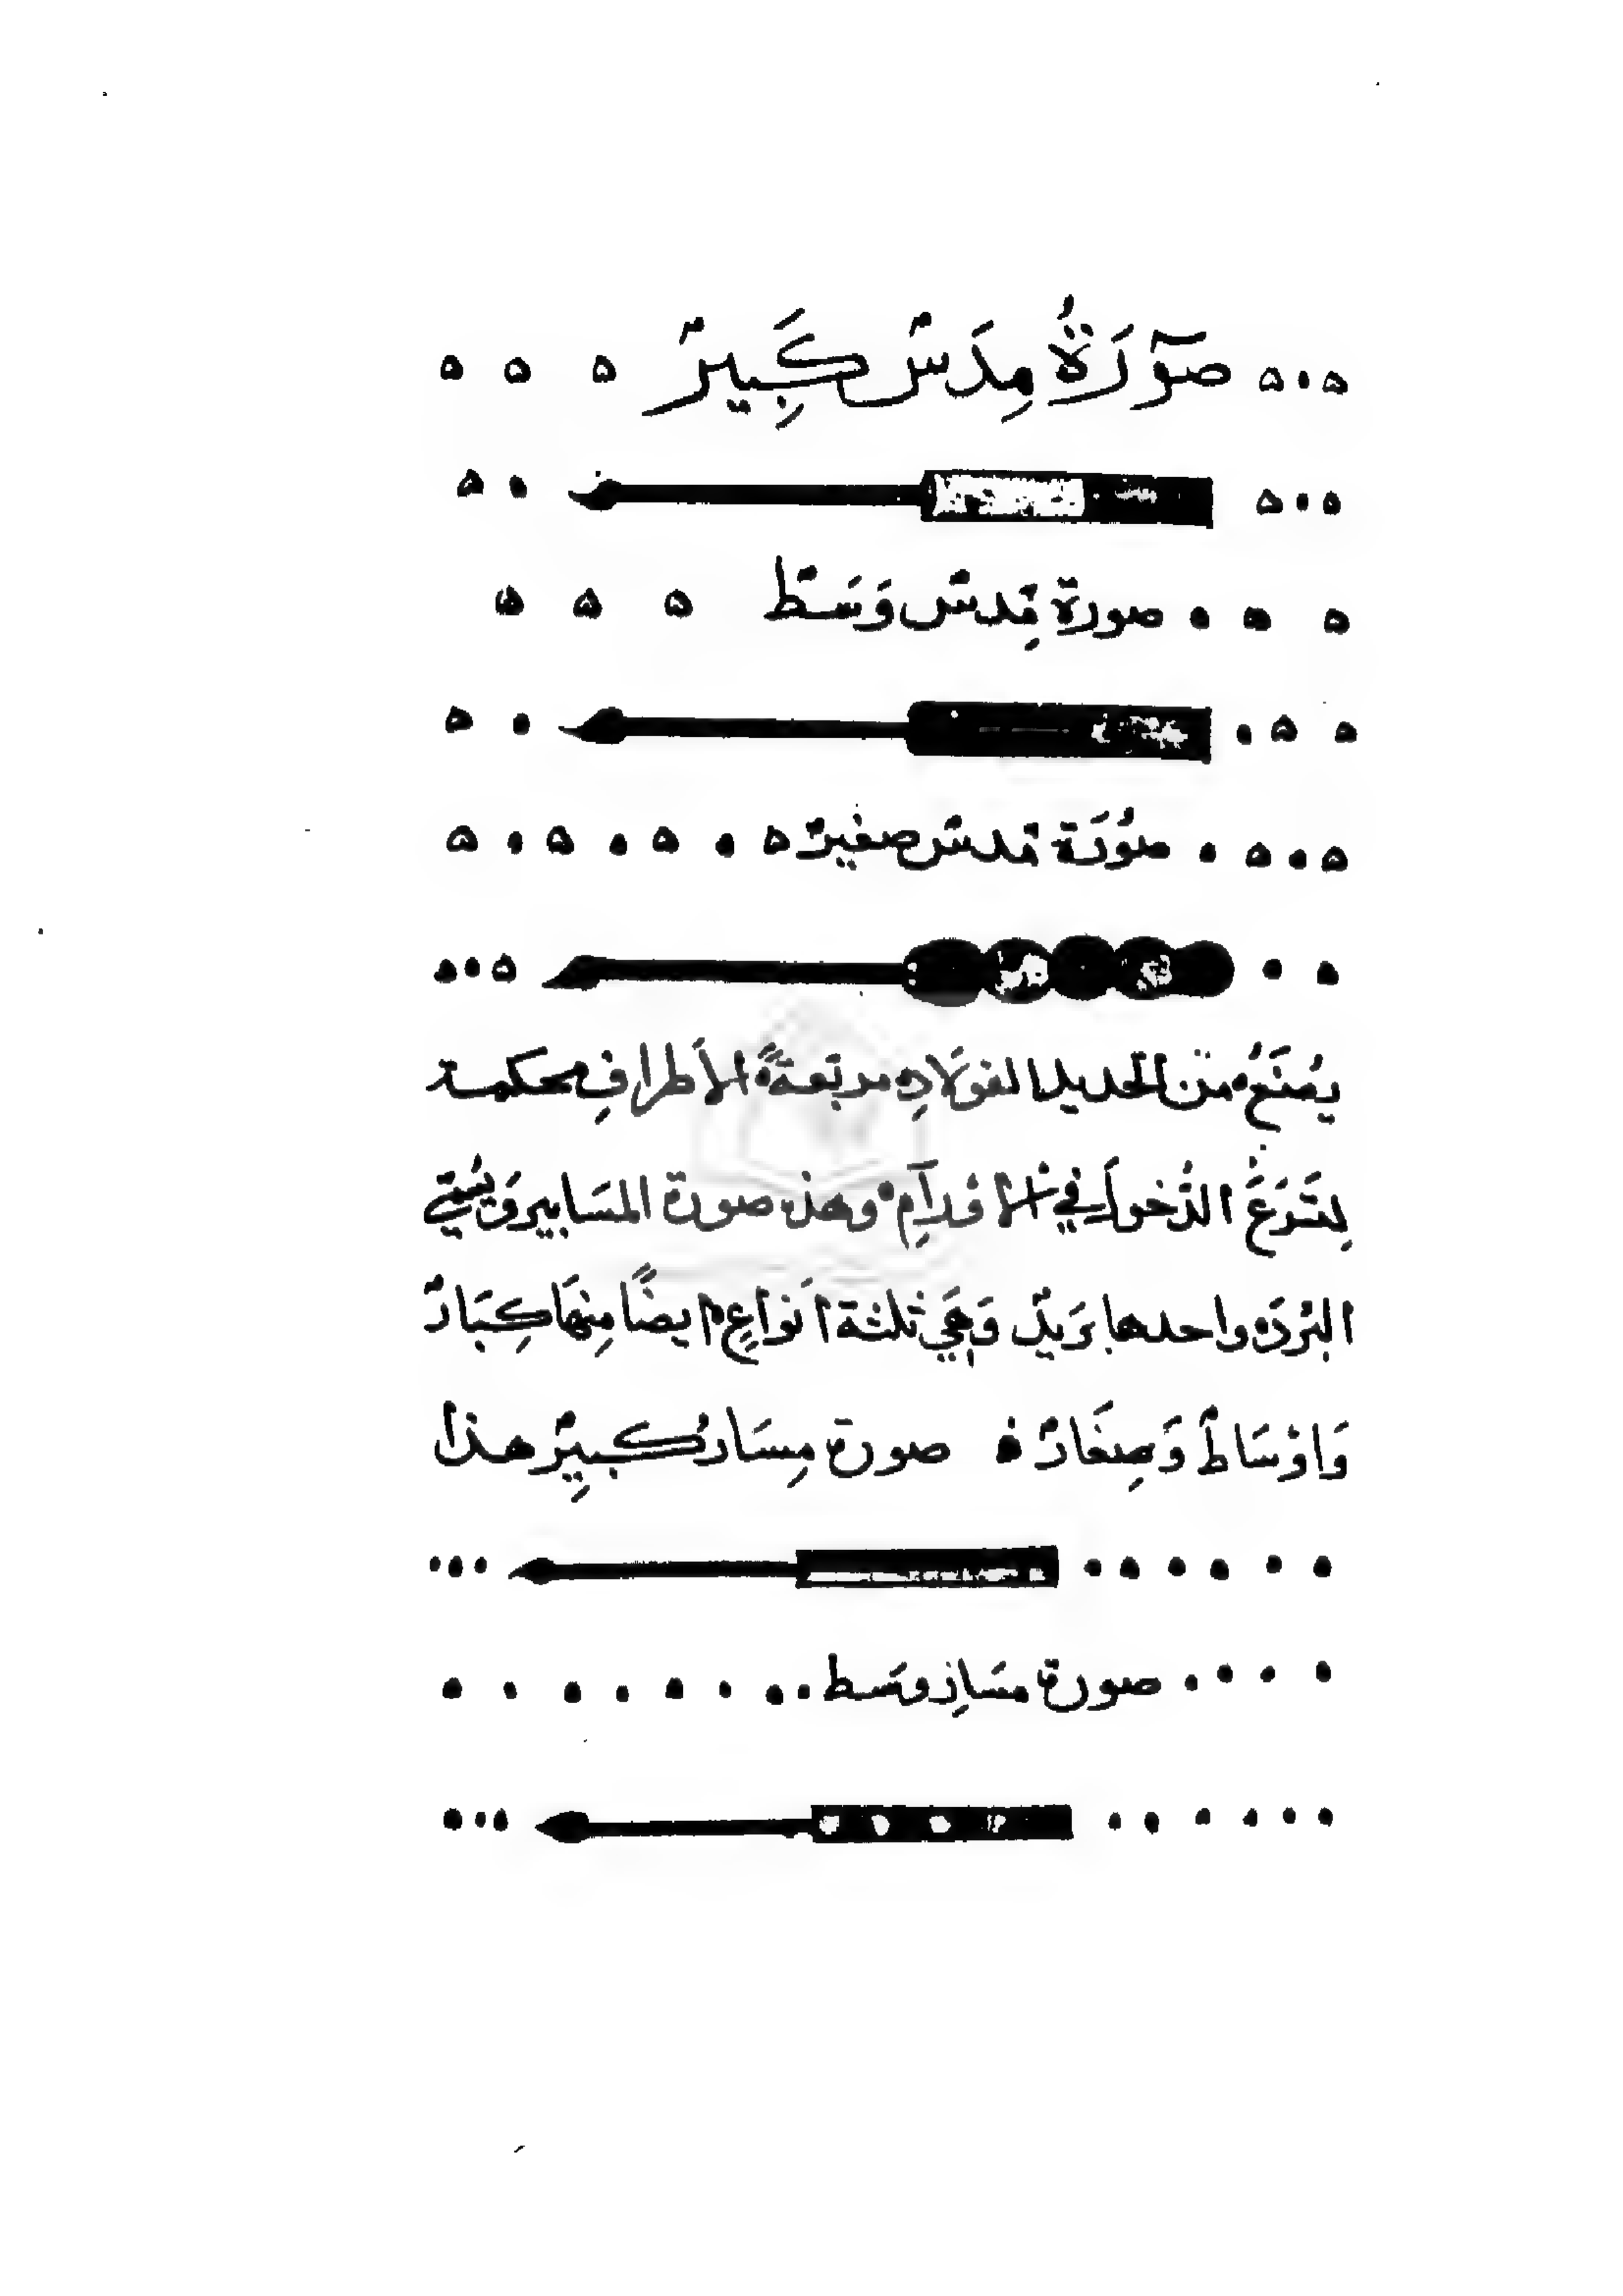 صُوۤرَةُ مِدَسٍّ كَبِيرٍ
صورة مِدسّ وَسَط
صُورَة مدسّ صغير
يُصنَعُ من الحديد الفولاذِ مربّعةً الأطرافِ محكمة
لِتَسرَعَ الدُّخولَ في الأورامِ وهذه صورة المسَابير وَيسمّى
البُرُدَ واحدها بَريدٌ وَهِيَ ثلثة أنواعٍ أيضًا مِنهَا كِبَارٌ
وَاوْسَاطٌ وَصِغَارٌ صورة مِسبَار كبيرٍ هذا
صورة مسبَار وسَط